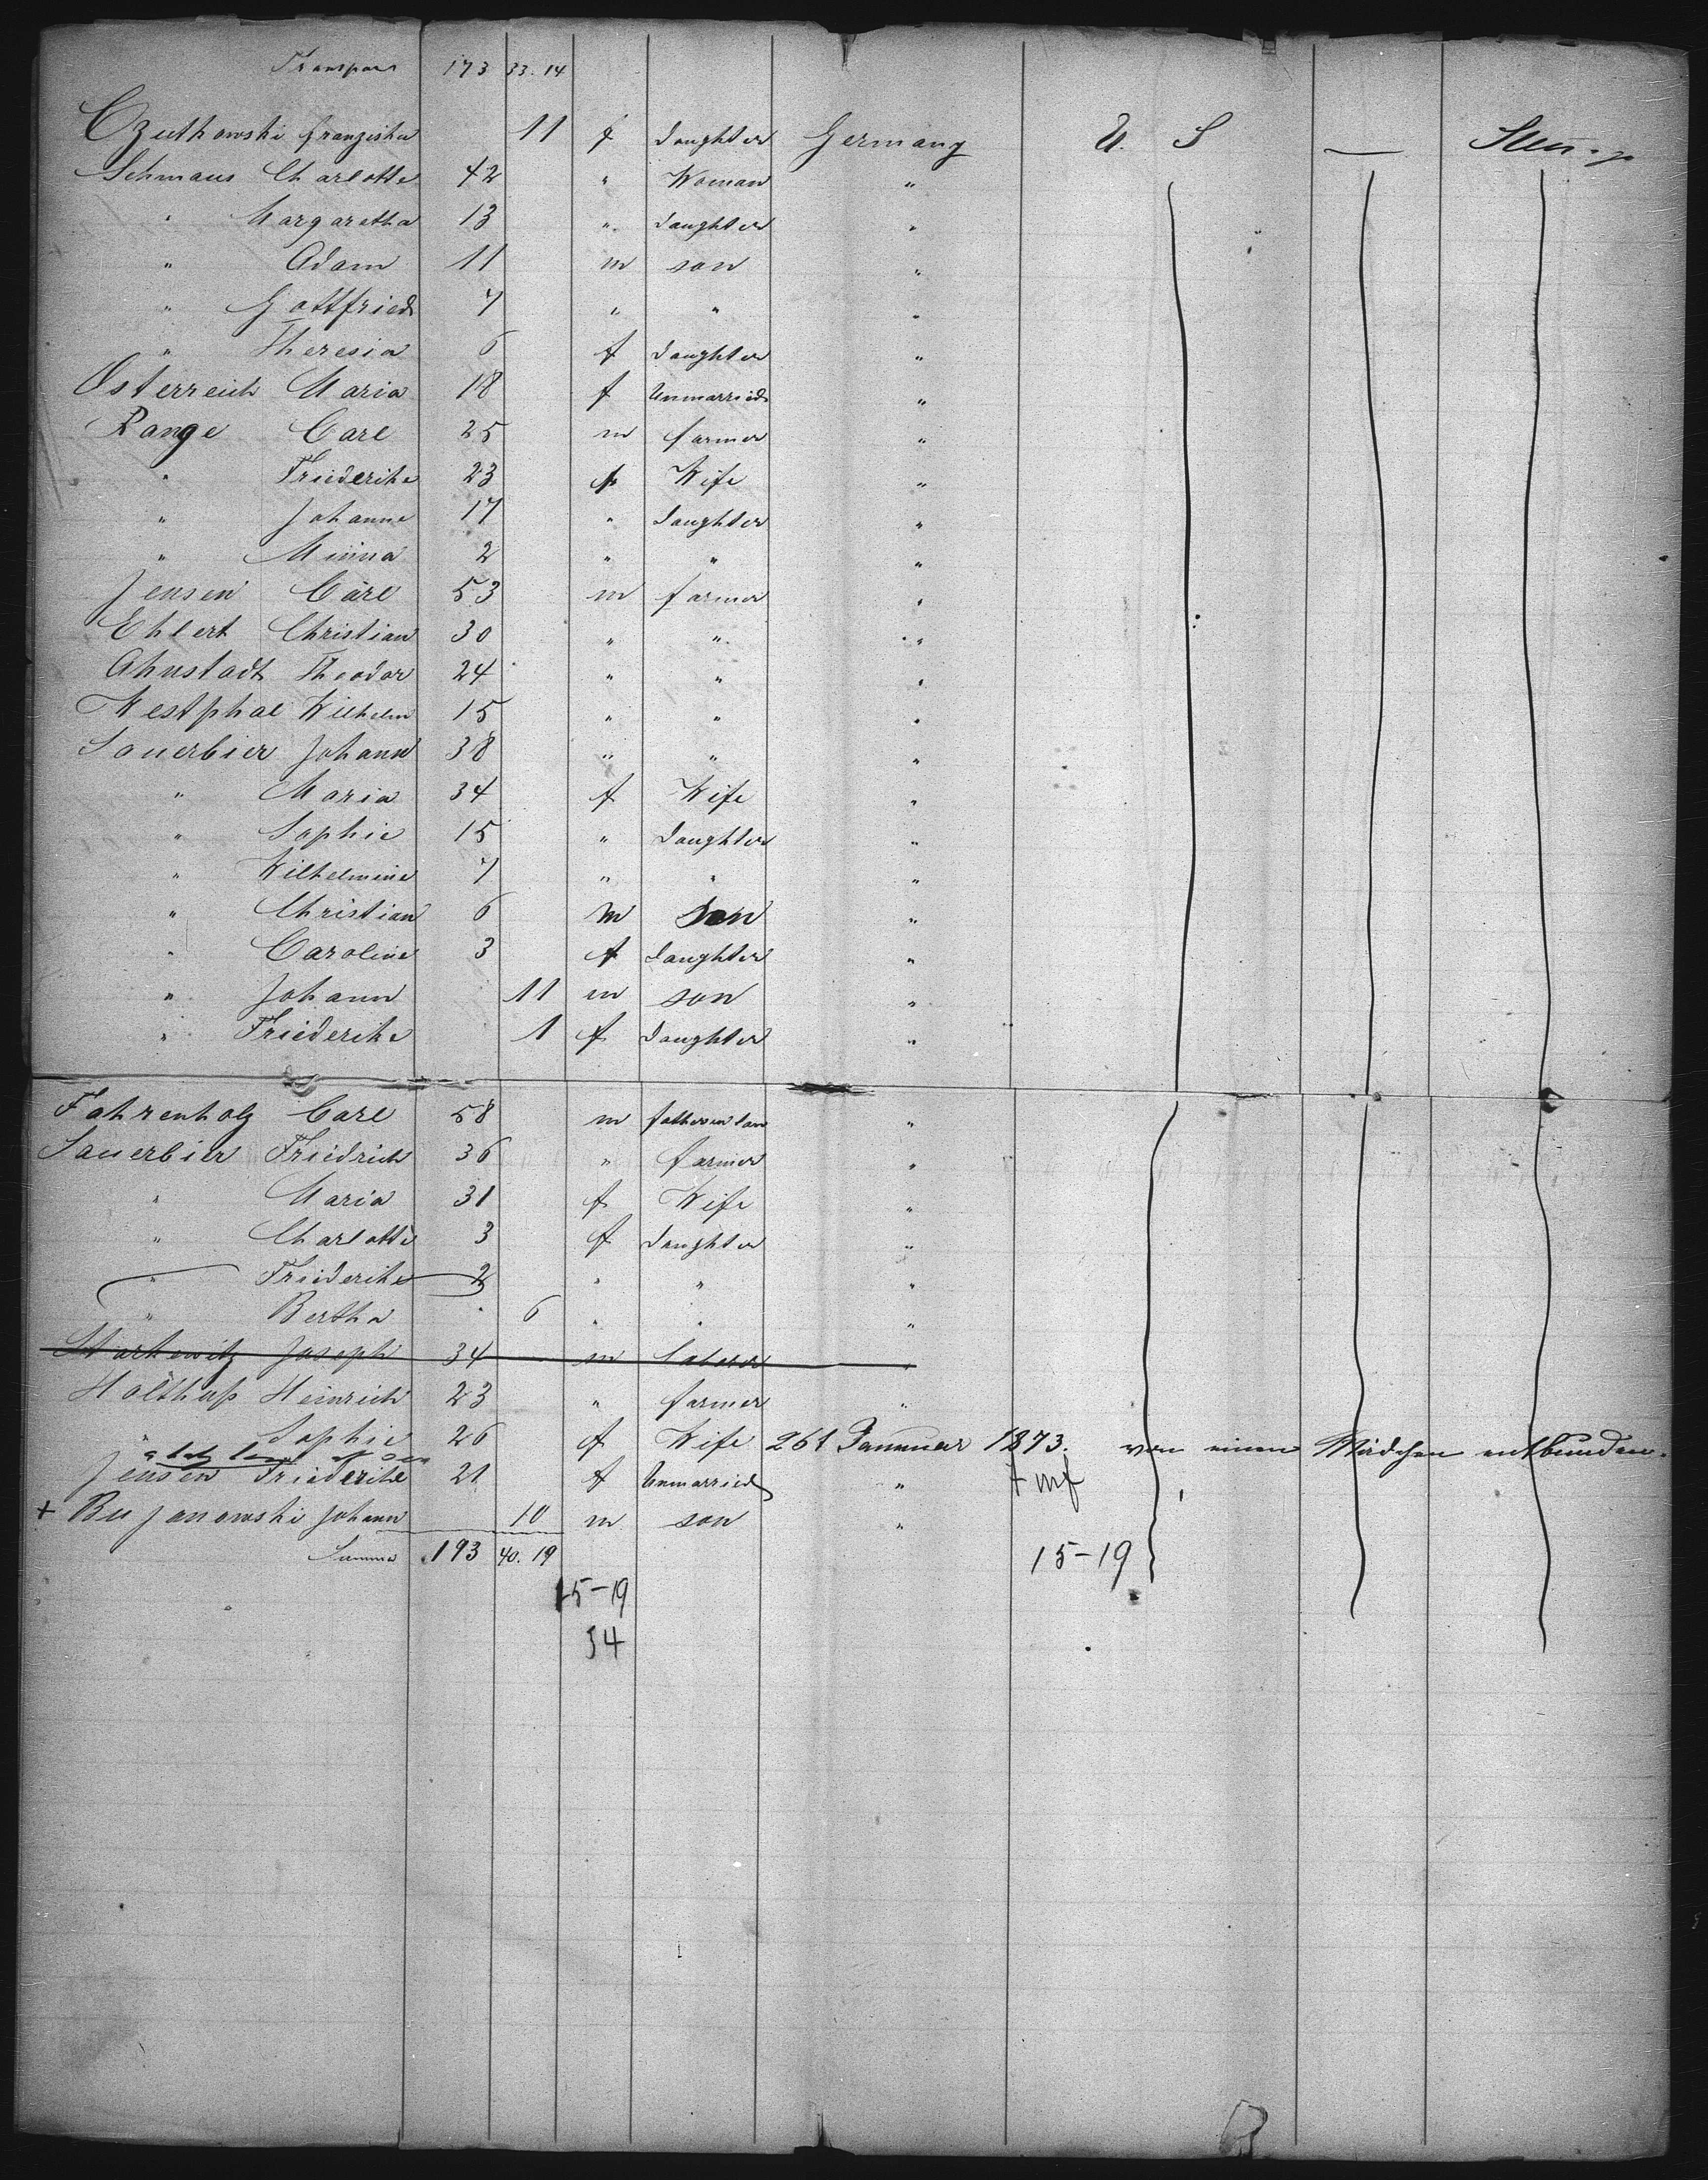 Transport 173 33. 14
Czutkowski Franziska 11 f daughter Germany U. S — 
Schmaus Charlotte 42 " Woman "
" Margaretha 13 " daughter "
" Adam 11 m son "
" Gottfried 7 " " "
" Theresia 6 f daughter "
Osterreich Maria 18 f Unmarried "
Range Carl 25 m farmer "
" Friederike 23 f Wife "
" Johanne 17 " daughter "
" Minna 2 " " "
Jensen Carl 53 m farmer "
Ehlert Christian 30 " " "
Ahnstadt Theodor 24 " " "
Westphal Wilhelm 15 " " "
Sauerbier Johann 38 " " "
" Maria 34 f Wife "
" Sophie 15 " daughter "
" Wilhelmine 7 " " "
" Christian 6 m son "
" Caroline 3 f daughter "
" Johann 11 m son "
" Friederike 1 f daughter "
Fahrenholz Carl 58 m father in law "
Sauerbier Friedrich 36 " farmer "
" Maria 31 f Wife "
" Charlotte 3 f daughter "
" Friederike 2 " " "
" Bertha 6 " " "
Joseph 34 m "
Holthuß Heinrich 23 " farmer "
" Sophie 26 f Wife 26t Januar 1873. von einen Mädchen entbunden.
Jensen Friederike 21 f Unmarried "
+ Bujanowski Johann 10 m son "
Summa 193 40. 19 15-19
15-19
34